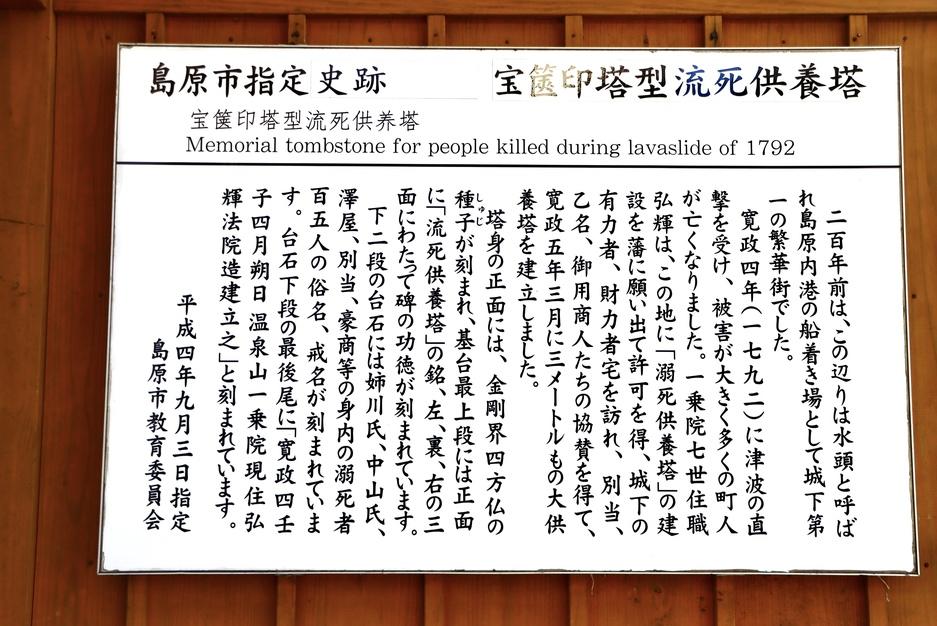 島原市指定史跡 宝篋印塔型流死供養塔
宝篋印塔型流死供养塔
Memorial tombstone for people killed during lavaslide of 1792
二百年前は、この辺りは水頭と呼ば
れ島原内港の船着き場として城下第
一の繁華街でした。
寛政四年(一七九二)に津波の直
撃を受け、被害が大きく多くの町人
が亡くなりました。一乗院七世住職
弘輝は、この地に「溺死供養塔」の建
設を藩に願い出て許可を得、城下の
有力者、財力者宅を訪れ、別当、
乙名、御用商人たちの協賛を得て、
寛政五年三月に三メートルもの大供
養塔を建立しました。
塔身の正面には、金剛界四方仏の
種子しゅじが刻まれ、基台最上段には正面
に「流死供養塔」の銘、左、裏、右の三
面にわたって碑の功徳が刻まれています。
下二段の台石には姉川氏、中山氏、
澤屋、別当、豪商等の身内の溺死者
百五人の俗名、戒名が刻まれていま
す。台石下段の最後尾に「寛政四壬
子四月朔日温泉山一乗院現住弘
輝法院造建立之」と刻まれています。
平成四年九月三日指定
島原市教育委員会